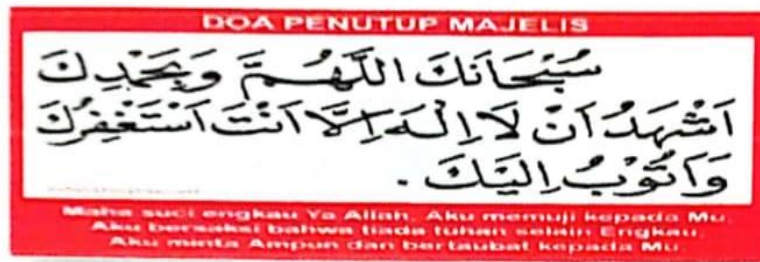 DOA PENUTUP MAJELIS
سُبْحَانَكَ اللَّهُمَّ وَبِحَمْدِكَ
اَشْهَدُ اَنْ لَا اِلٰهَ اِلَّا اَنْتَ اَسْتَغْفِرُكَ
وَاَتُوْبُ اِلَيْكَ .
Maha suci engkau Ya Allah, Aku memuji kepada Mu.
Aku bersaksi bahwa tiada tuhan selain Engkau.
Aku minta Ampun dan bertaubat kepada Mu